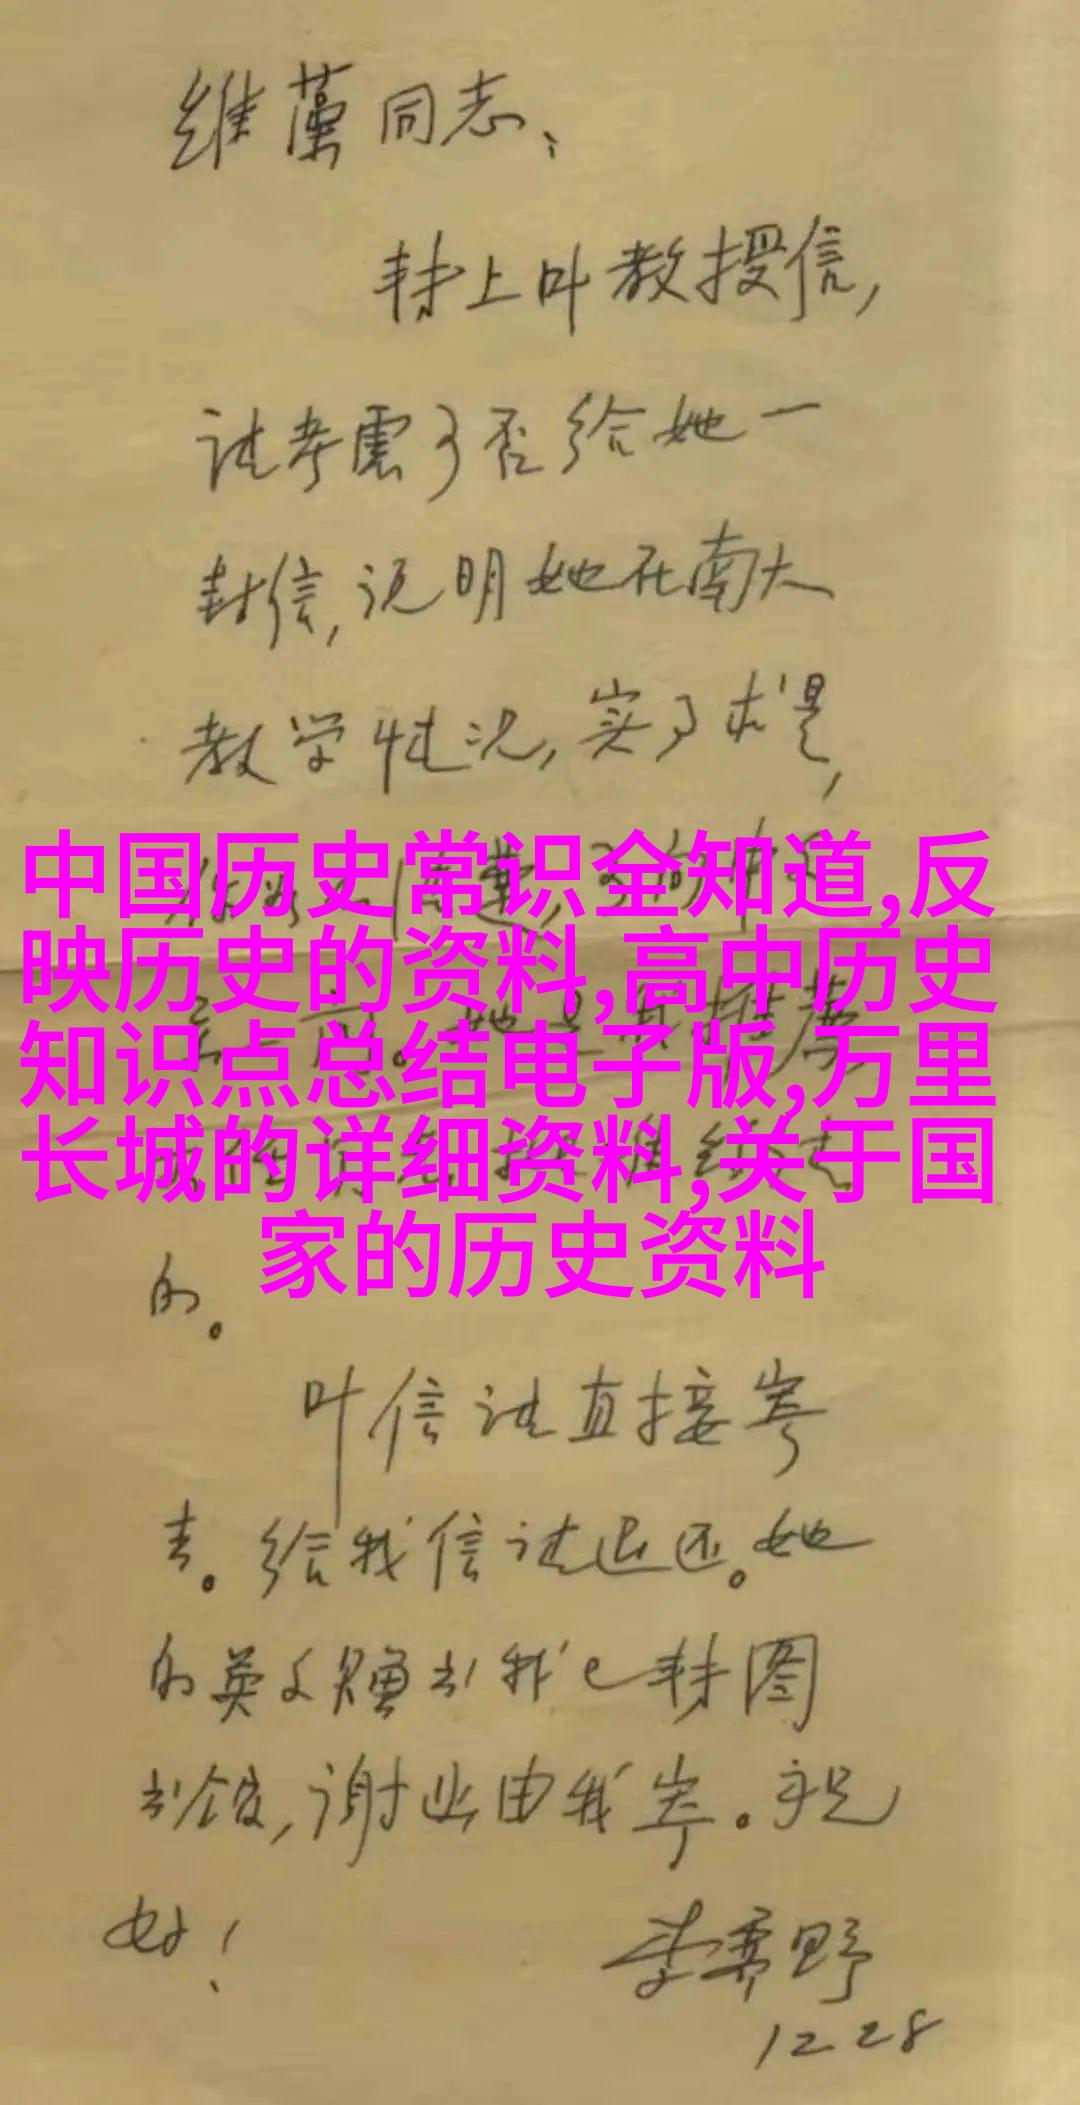 维藻同志：
转上叶教授信，
请考虑可否给她一
封信，说明她在南大
教学情况，实事求是，
中国历史常识全知道,反
映历史的资料,高中历史
知识点总结电子版,万里
长城的详细资料,关于国
家的历史资料
的。
叶信请直接寄
去。给我信请退还。她
的英文赠书我已转图
书馆，谢业由我寄。祝
好！
李霁野
12 28